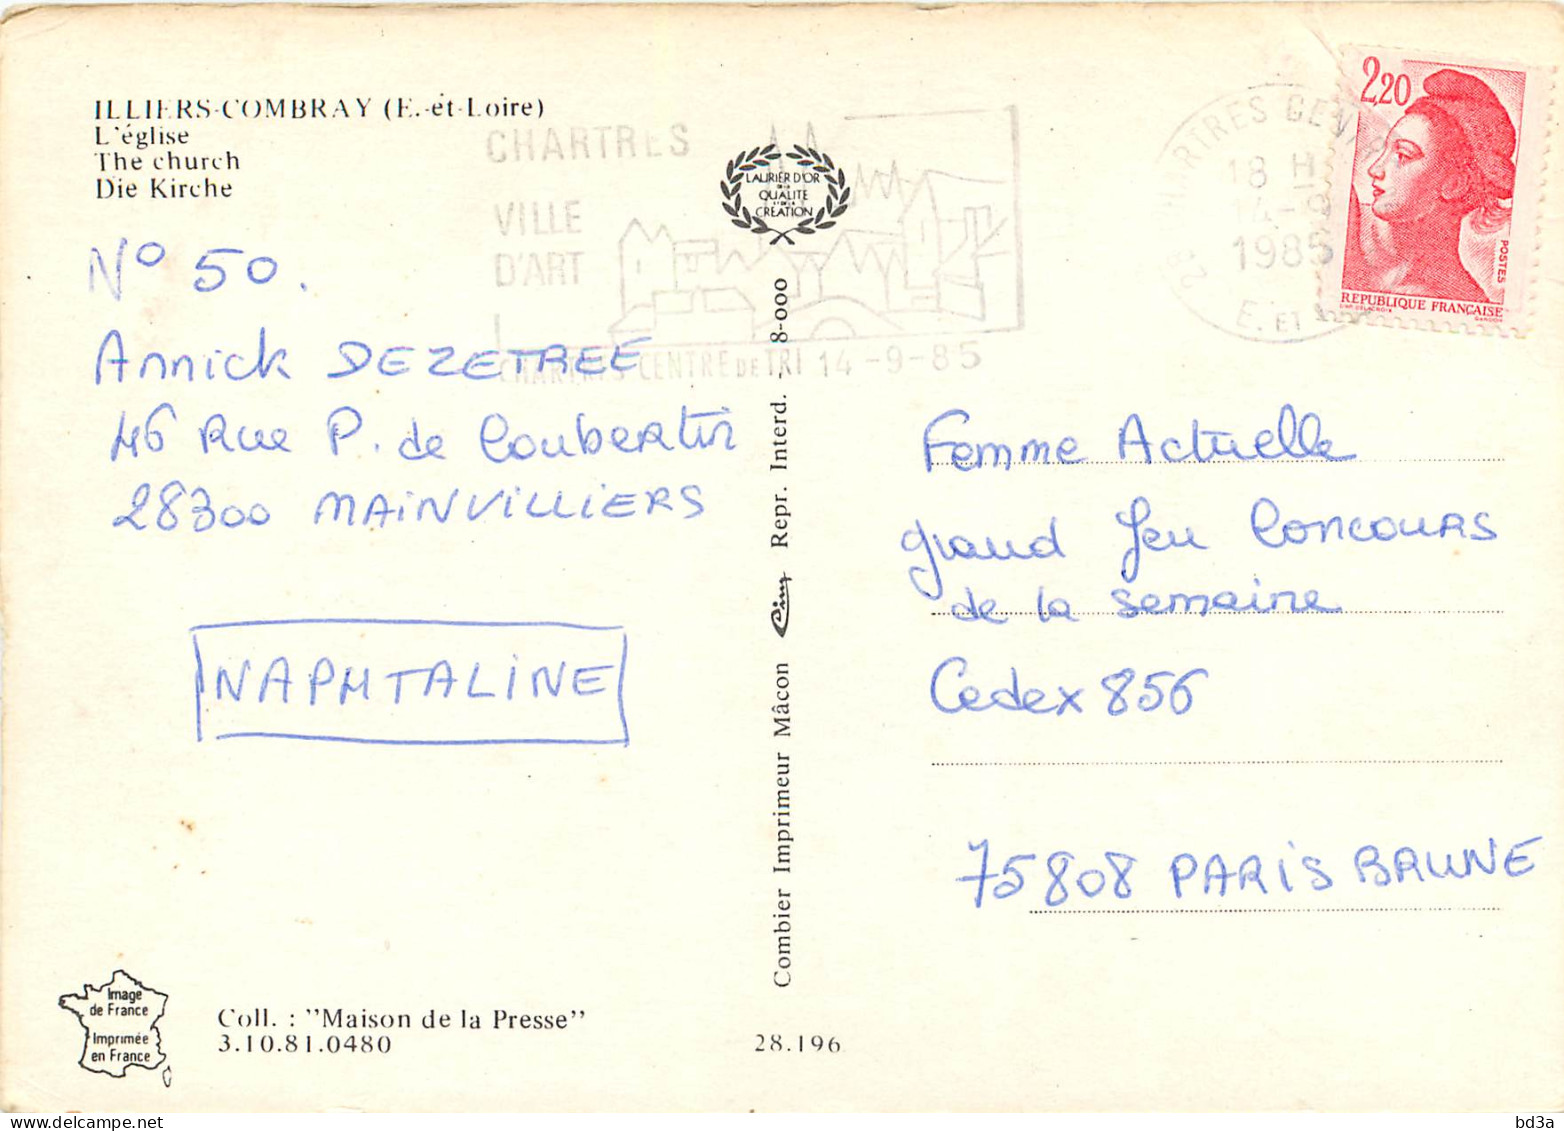 ILLIERS-COMBRAY (E.-et-Loire)
L'église
The church
Die Kirche
N° 50.
Annick DEZETREE
46 Rue P. de Coubertin
28300 MAINVILLIERS
NAPHTALINE
Image
de France
Imprimée
en France
Coll. : "Maison de la Presse"
3.10.81.0480
CHARTRES
VILLE
D'ART
CHARTRES CENTRE DE TRI 14-9-85
LAURIER D'OR
DE LA
QUALITÉ
ET DE LA
CRÉATION
Combier Imprimeur Mâcon Cim Repr. Interd. - 8-000
28.196
18 H
14-9
1985
28
E. ET
2,20
POSTES
REPUBLIQUE FRANÇAISE
GANDON
Femme Actuelle
grand Jeu Concours
de la semaine
Cedex 856
75808 PARIS BRUNE
bd3a